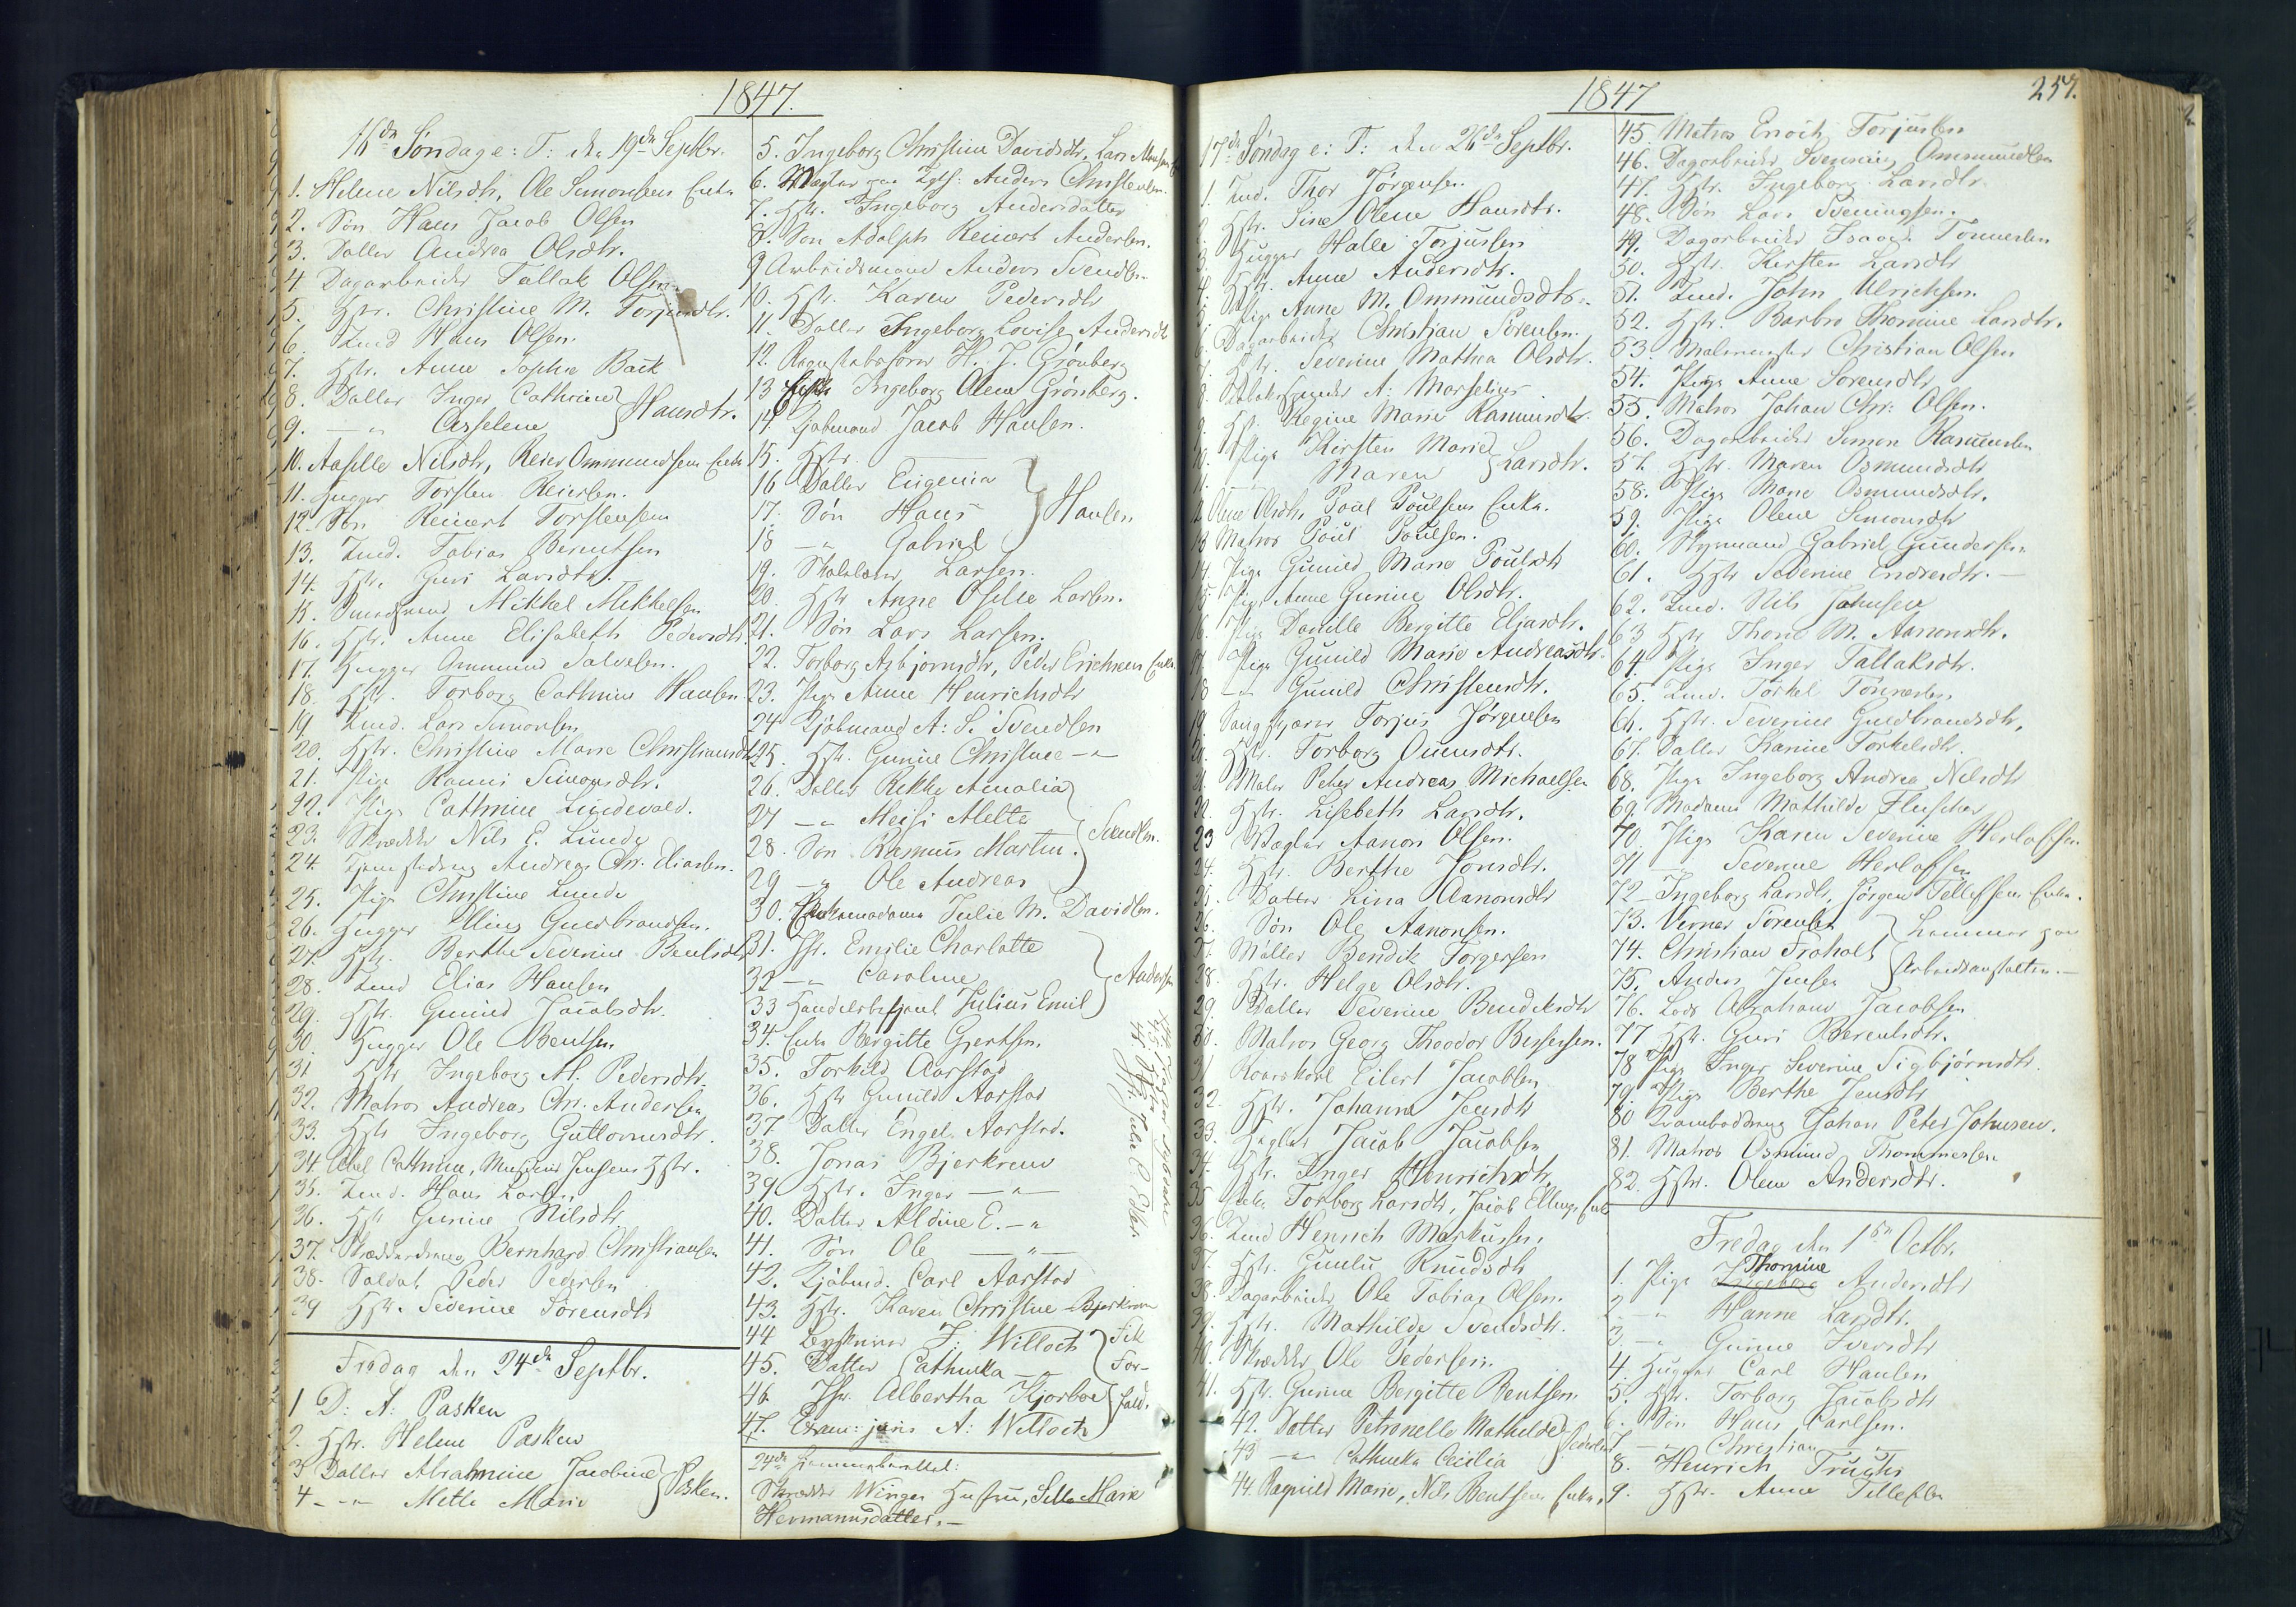 1847.
16de Søndag e: T: den 19de Septbr.
1. Helene Nilsdtr, Ole Simonsens Enke
2. Søn Hans Jacob Olsen
3. Datter Andrea Olsdtr.
4. Dagarbeider Tallak Olsen
5. Hstr. Christine M. Torjusdtr.
6. Tmd Hans Olsen.
7. Hstr. Anne Sophie Back
8. Datter Inger Cathrine } Hansdtr.
9. —"— Asselene
10. Aaselle Nilsdtr, Reier Ommundsens Enke
11. Hugger Torsten Reiersen.
12. Søn Reinert Torstensen
13. Tmd. Tobias Berentsen
14. Hstr. Guri Larsdtr.
15. Mikkel Mikkelsen
16. Hstr. Anne Elisabeth Pedersdtr.
17. Hugger Ommund Salvesen.
18. Hstr. Torborg Cathrine Hansen.
19. Tmd. Lars Simonsen
20. Hstr. Christine Marie Christiansdtr
21. Pige Ramni Simonsdtr.
22. Pige Cathrine Lundevold.
23. Skrædder Nils E. Lunde
24. Tjenestedreng Andreas Chr. Eliasen.
25. Pige Christine Lunde
26. Hugger Elling Guldbrandsen.
27. Hstr. Berthe Severine Bentsdtr
28. Tmd Elias Hansen
29. Hstr. Gunild Jacobsdtr.
30. Hugger Ole Bentsen.
31. Hstr Ingeborg M. Pedersdtr.
32. Matros Andreas Chr. Andersen
33. Hstr Ingeborg Guttormsdtr.
34. Abel Cathrine, Jensens Hstr.
35. Tmd. Hans Larsen
36. Hstr Gunine Nilsdtr
37. Skrædderdreng Bernhard Christiansen
38. Soldat Peder Pedersen
39 Hstr. Severine Sørensdtr
Fredag den 24de Septbr.
1 D: A: Pasken
2. Hstr. Helene Pasken
3 Datter Abrahmine Jacobine } Pasken.
4 —"— Mette Marie
5. Ingeborg Christine Davidsdtr, Lars Enke
6. Vægter ved Anders Christensen.
7. Hstr. Ingeborg Andersdatter
8. Søn Adolph Reinert Andersen.
9 Arbeidsmand Anders Svendsen
10. Hstr. Karen Pedersdtr
11. Datter Ingeborg Lovise Andersdtr
12. H. J. Grønberg
13 Enke Ingeborg Olene Grønberg.
14 Kjøbmand Jacob Hansen.
15. Hstr. ———
16 Datter Eugenia } Hansen
17. Søn Hans
18 —"— Gabriel
19. Skolelærer Larsen.
20. Hstr Anne Oselie Larsen.
21. Søn Lars Larsen.
22. Torborg Asbjørnsdtr, Peder Erichsens Enke
23. Pige Anne Henrichsdtr
24 Kjøbmand A: S. Svendsen
25. Hstr. Gunine Christine —"—
26. Datter Rikke Amalia } Svendsen.
27 —"— Meisi Mette
28. Søn Rasmus Martin.
29 —"— Ole Andreas
30. Enkemadame Julie M. Davidsen.
31. Jfr. Emilie Charlotte } Andersen
32 —"— Caroline
33 Handelsbetjent Julius Emil
34. Enke Bergitte Gjertsen.
35. Torkild Aarstad
36. Hstr Gunild Aarstad
37 Datter Engel Aarstad.
38. Jonas Bjerkrem
39. Hstr. Inger —"—
40. Datter Aldine E. —"
41. Søn Ole —"—
42. Kjøbmd. Carl Aarstad
43. Hstr. Karen Christine Bjerkrem
44 J. Willoch
45. Datter Cathinka —
46. Jfr. Albertha Kjorboe } For-fald.
47. Exam: juris A: Willoch
24de
Skrædder Winges Hustru, Sille Marie
Hermannsdatter.—
1847
257.
17de Søndag e: T: den 26de Septbr.
1. Tmd. Thor Jørgensen.
2. Hstr. Sine Olene Hansdtr.
3. Hugger Halle Torjussen
4. Hstr. Anne Andersdtr.
5. Pige Anne M. Ommundsdtr.
6. Dagarbeider Christian Sørensen.
7. Hstr. Severine Mathea Olsdtr.
8. A: Marselius
9. Hstr. Regine Marie Rasmusdtr.
10. Pige Kirsten Marie } Larsdtr.
11. Maren
12. Olene Olsdtr, Poul Poulsens Enke.
13 Matros Poul Poulsen.
14. Pige Gunild Marie Poulsdtr
15 Pige Anne Gunine Olsdtr.
16. Pige Danille Bergitte Eljasdtr.
17. Pige Gunild Marie Andreasdtr.
18 —"— Gunild Christensdtr.
19. Torjus Jørgensen
20. Hstr. Torborg Ounsdtr.
21. Maler Peter Andreas Michaelsen
22. Hstr. Lisebeth Larsdtr.
23 Vægter Aanon Olsen.
24. Hstr. Berthe Jonsdtr.
25. Datter Lina Aanonsdtr
26. Søn Ole Aanonsen.
27. Møller Bendik Torgersen
28. Hstr. Helge Olsdtr.
29. Datter Severine Bendiksdtr
30. Matros Georg Theodor Berssesen.
31 Roerskarl Eilert Jacobsen
32. Hstr. Johanne Jensdtr
33. Jacob Jacobsen
34. Hstr. Inger Henrichsdtr.
35 Torborg Larsdtr, Jacob Ellings Enke
36. Tmd Henrich Markussen.
37. Hstr. Gunlu Knudsdtr
38. Dagarbeider Ole Tobias Olsen.
39. Hstr. Mathilde Svendsdtr.
40. Skrædder Ole Pedersen.
41. Hstr. Gunine Bergitte Bentsen.
42. Datter Petronelle Mathilde } Pedersen
43 —"— Cathinka Cecilia
44. Ragnild Marie, Nils Bentsens Enke.
45. Matros Enoch Torjussen
46. Dagarbeider Svenning Ommundsen
47. Hstr. Ingeborg Larsdtr.
48. Søn Lars Svenningsen.
49. Dagarbeider Isaack Tønnesen
50. Hstr. Kirsten Larsdtr
51. Tmd. John Ulrichsen.
52. Hstr. Barbro Thomine Larsdtr.
53. Christian Olsen
54. Pige Anne Sørensdtr
55. Matros Johan Chr: Olsen.
56. Dagarbeider Simon Rasmussen
57. Hstr. Maren Osmundsdtr
58. Pige Marie Osmundsdtr.
59. Pige Olene Simonsdtr
60. Styrmand Gabriel Gundersen.
61. Hstr Severine Endresdtr. —
62. Tmd. Nils Johnsen
63 Hstr Thorie M. Aanonsdtr.
64. Pige Inger Tallaksdtr.
65. Tmd. Torkel Tønnesen
66. Hstr. Severine Guldbrandsdtr.
67. Datter Karine Torkelsdtr.
68. Pige Ingeborg Andrea Nilsdtr
69. Madame Mathilde Fleischer
70. Pige Karen Severine Herlofsen
71 — Severine Herlofsen
72 Ingeborg Larsdtr, Jørgen Tellefsens Enke.
73. Verner Sørensen } Lemmer paa
74. Christian Froholt
75. Anders Jensen } Arbeidsanstalten.—
76. Lods Abraham Jacobsen
77 Hstr. Guri Berentsdtr.
78 Pige Inger Severine Sigbjørnsdtr.
79. Pige Berthe Jensdtr
80 Johan Peter Johnsen.
81. Matros Osmund Thommesen
82. Hstr. Olene Andersdtr.
Fredag den 1ste Octbr.
Thomine
1. Pige Ingeborg Andersdtr
2 —"— Hanne Larsdtr.
3. —"— Gunine Iversdtr
4. Hugger Carl Hansen
5. Hstr. Torborg Jacobsdtr
6. Søn Hans Carlsen.
7 —"— Christian —"—
8. Henrich Truchs
9. Hstr. Anne Tellefsen